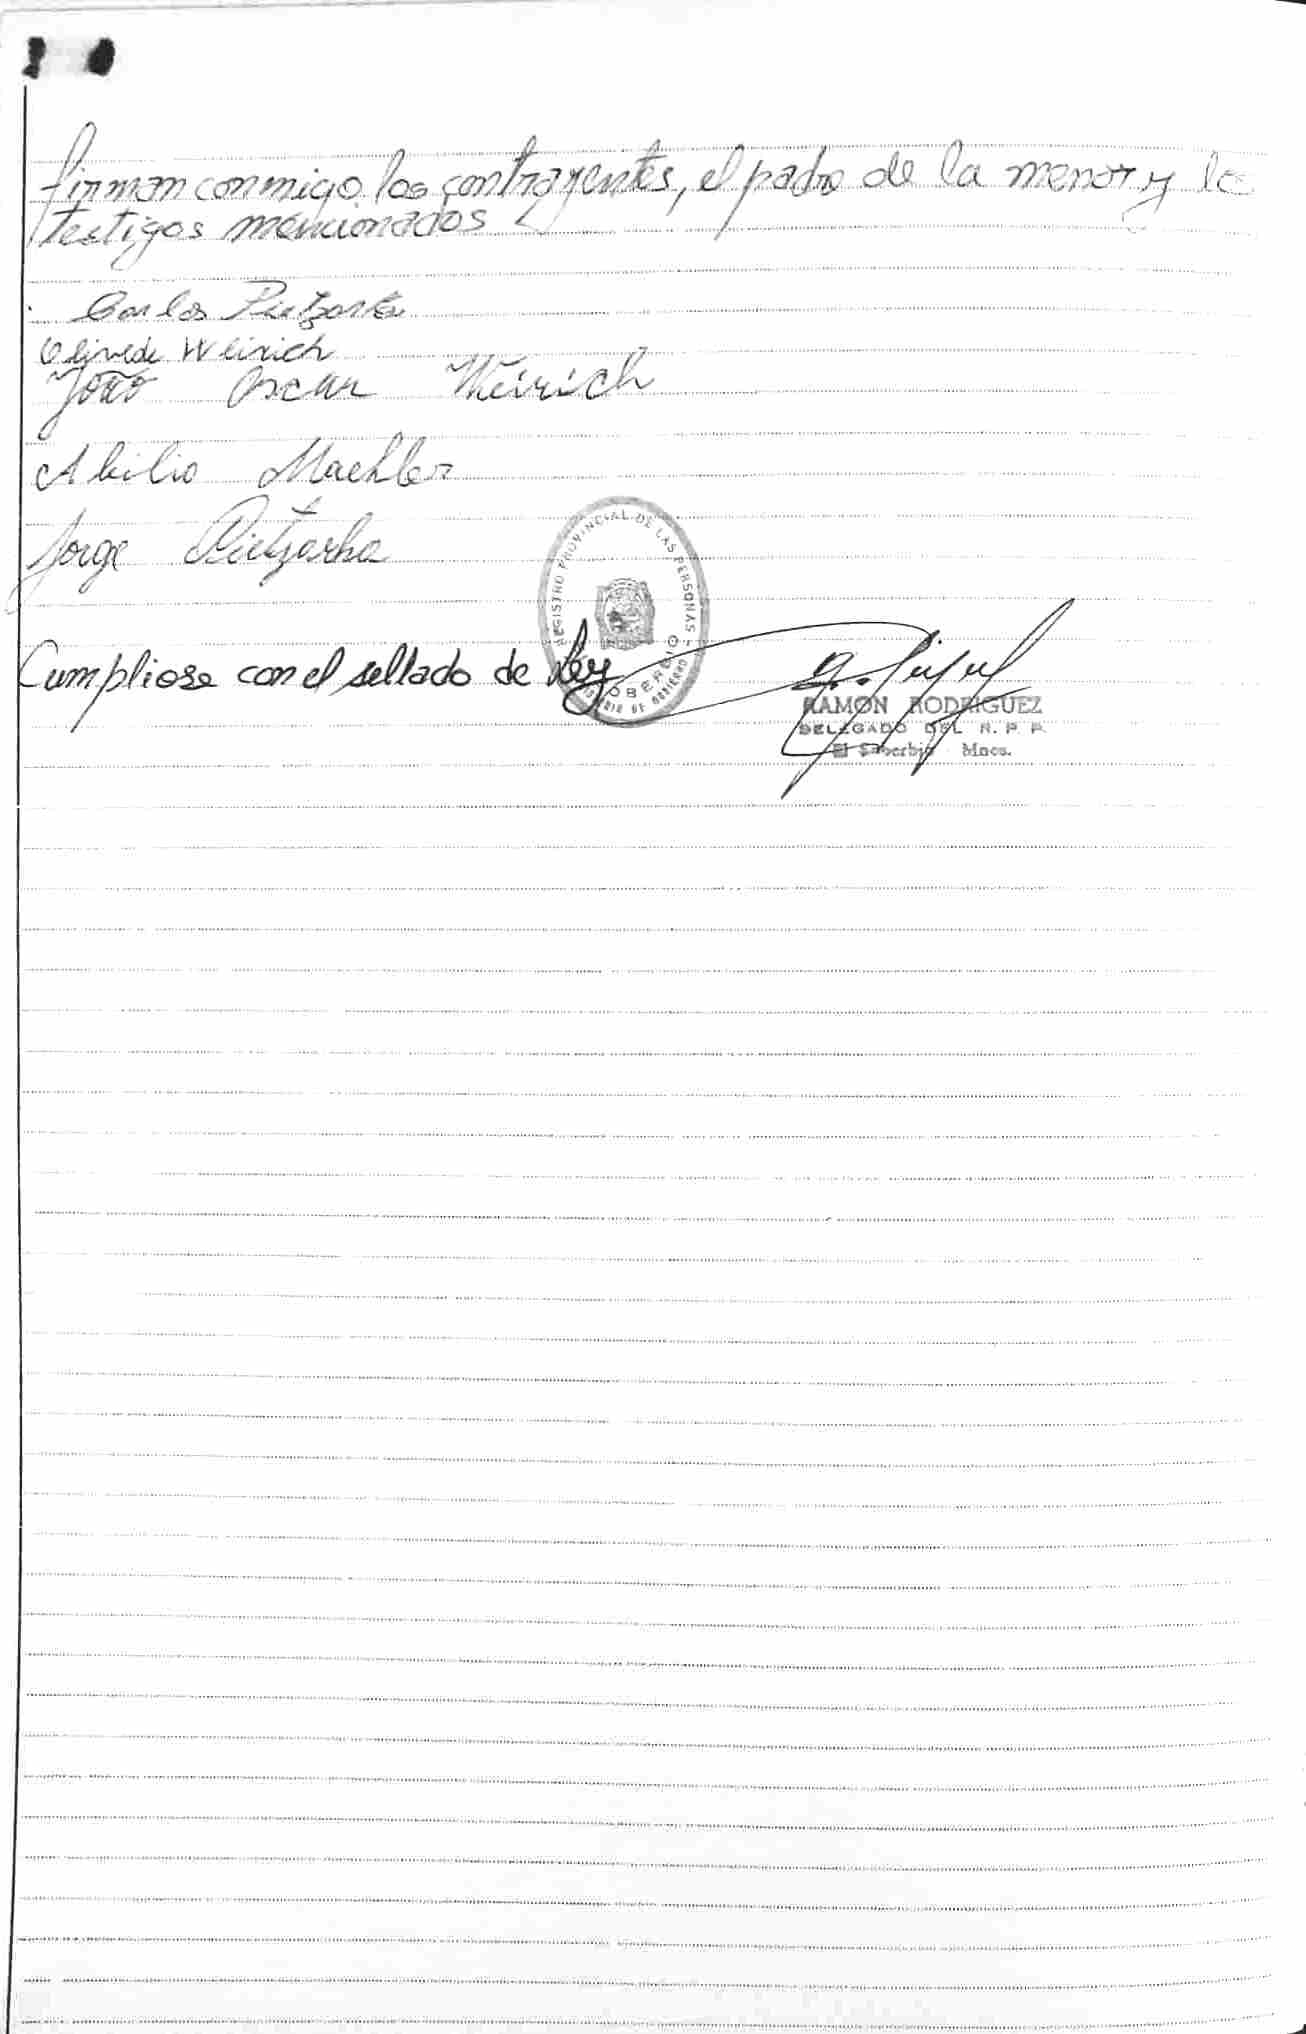 firman conmigo los contrayentes, el padre de la menor y lo
testigos mencionados
Carlos Pietzarka
Olivede Weirich
João Oscar Weirich
Abilio Maehler
Jorge Pietzarka
REGISTRO PROVINCIAL DE LAS PERSONAS
SOBERBIO
MINISTERIO DE GOBIERNO
Cumpliose con el sellado de ley
RAMON RODRIGUEZ
DELEGADO DEL R. P. P.
El Soberbio Mnes.